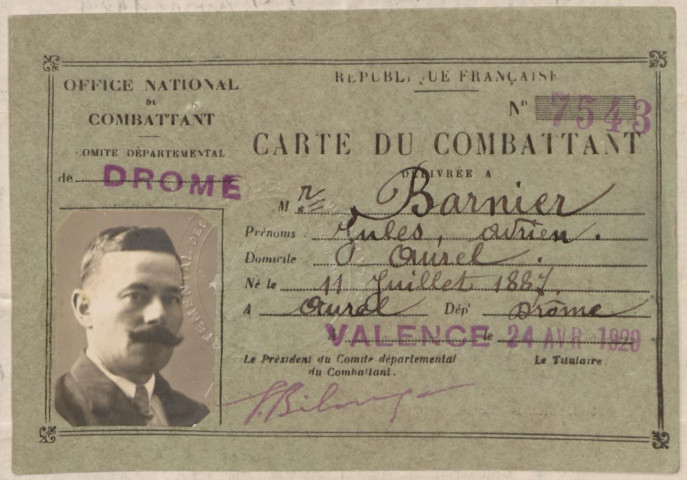 OFFICE NATIONAL
DU
COMBATTANT
COMITÉ DÉPARTEMENTAL
de DROME
RÉPUBLIQUE FRANÇAISE
N° 7543
CARTE DU COMBATTANT
DÉLIVRÉE A
M r Barnier
Prénoms : Jules, Adrien.
Domicile Aurel.
Né le 11 Juillet 1887.
A Aurel Dép^t Drôme
VALENCE le 24 AVR 1929
Le Président du Comité départemental
du Combattant.
Le Titulaire.